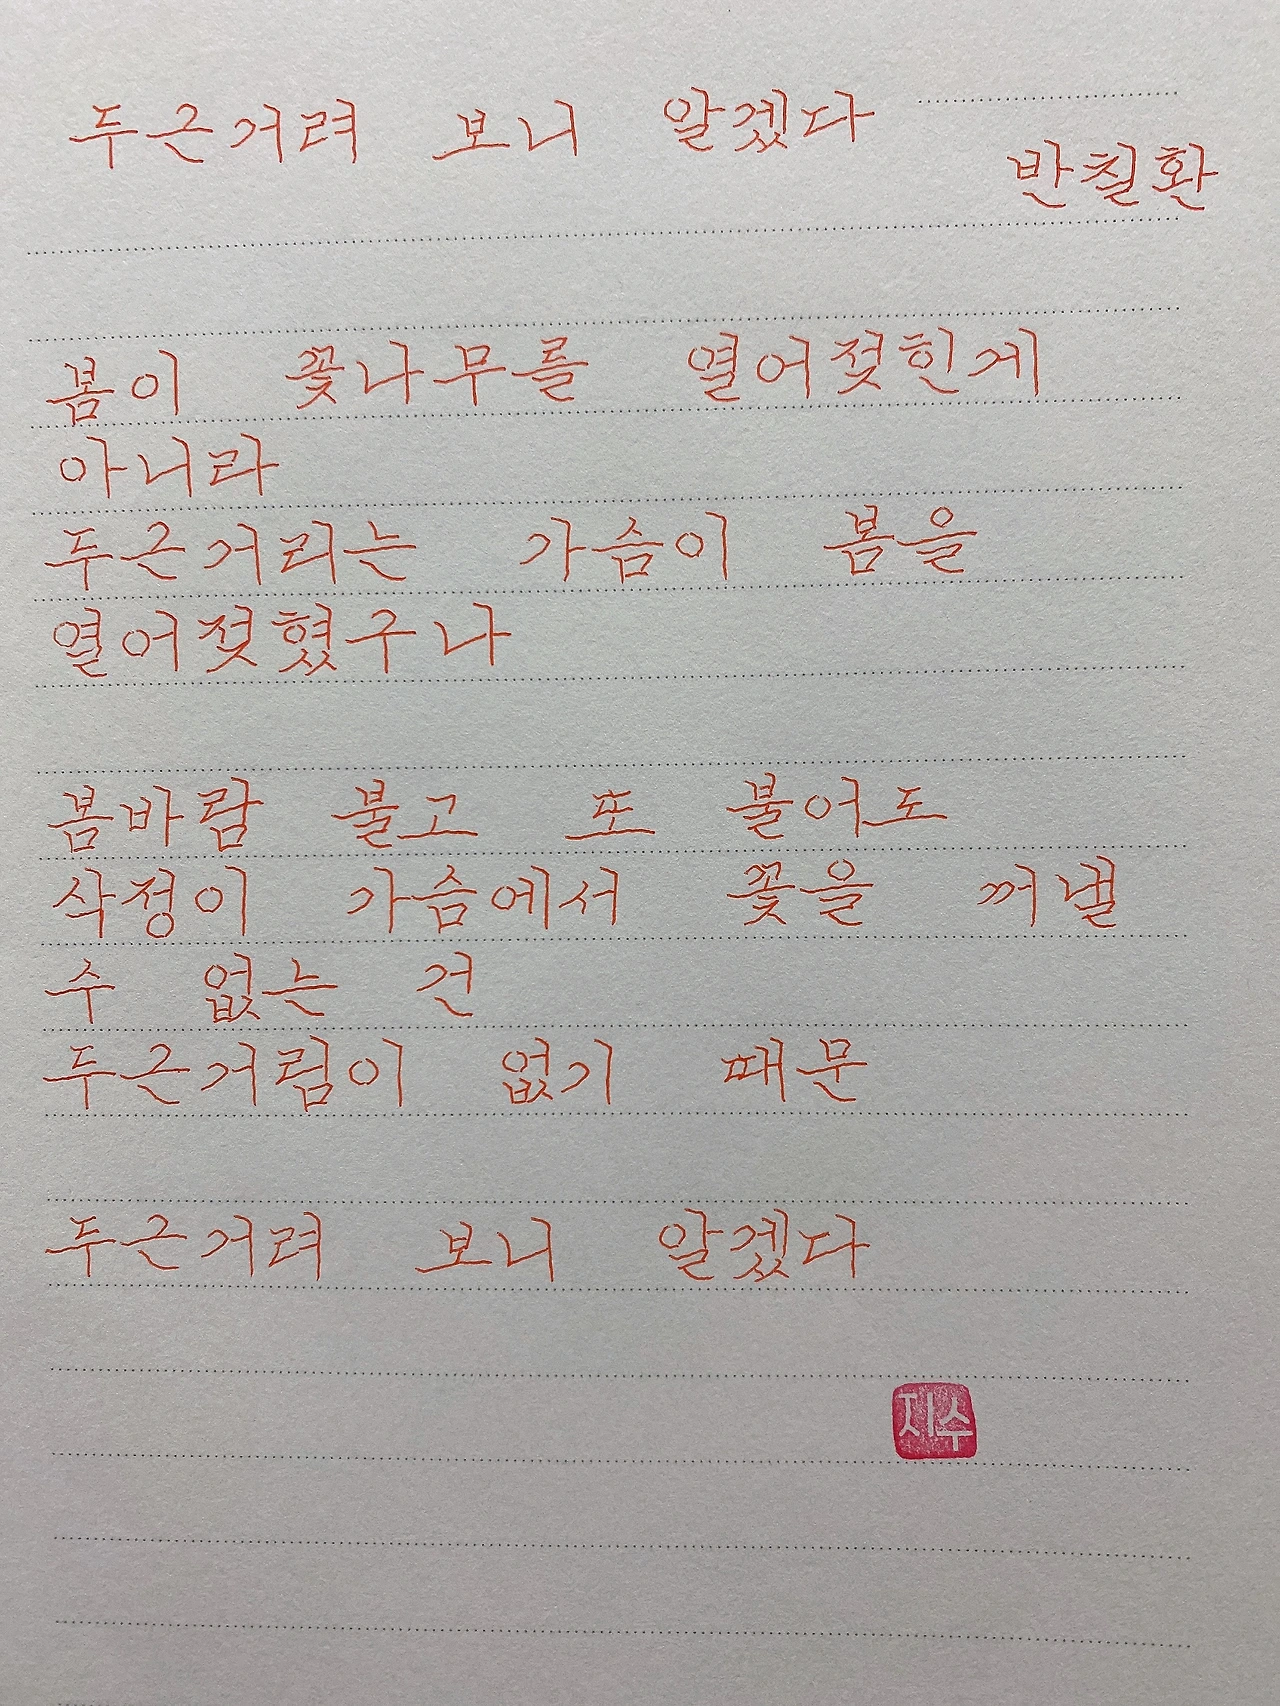 두근거려 보니 알겠다
반칠환
봄이 꽃나무를 열어젖힌게
아니라
두근거리는 가슴이 봄을
열어젖혔구나
봄바람 불고 또 불어도
삭정이 가슴에서 꽃을 꺼낼
수 없는 건
두근거림이 없기 때문
두근거려 보니 알겠다
지수